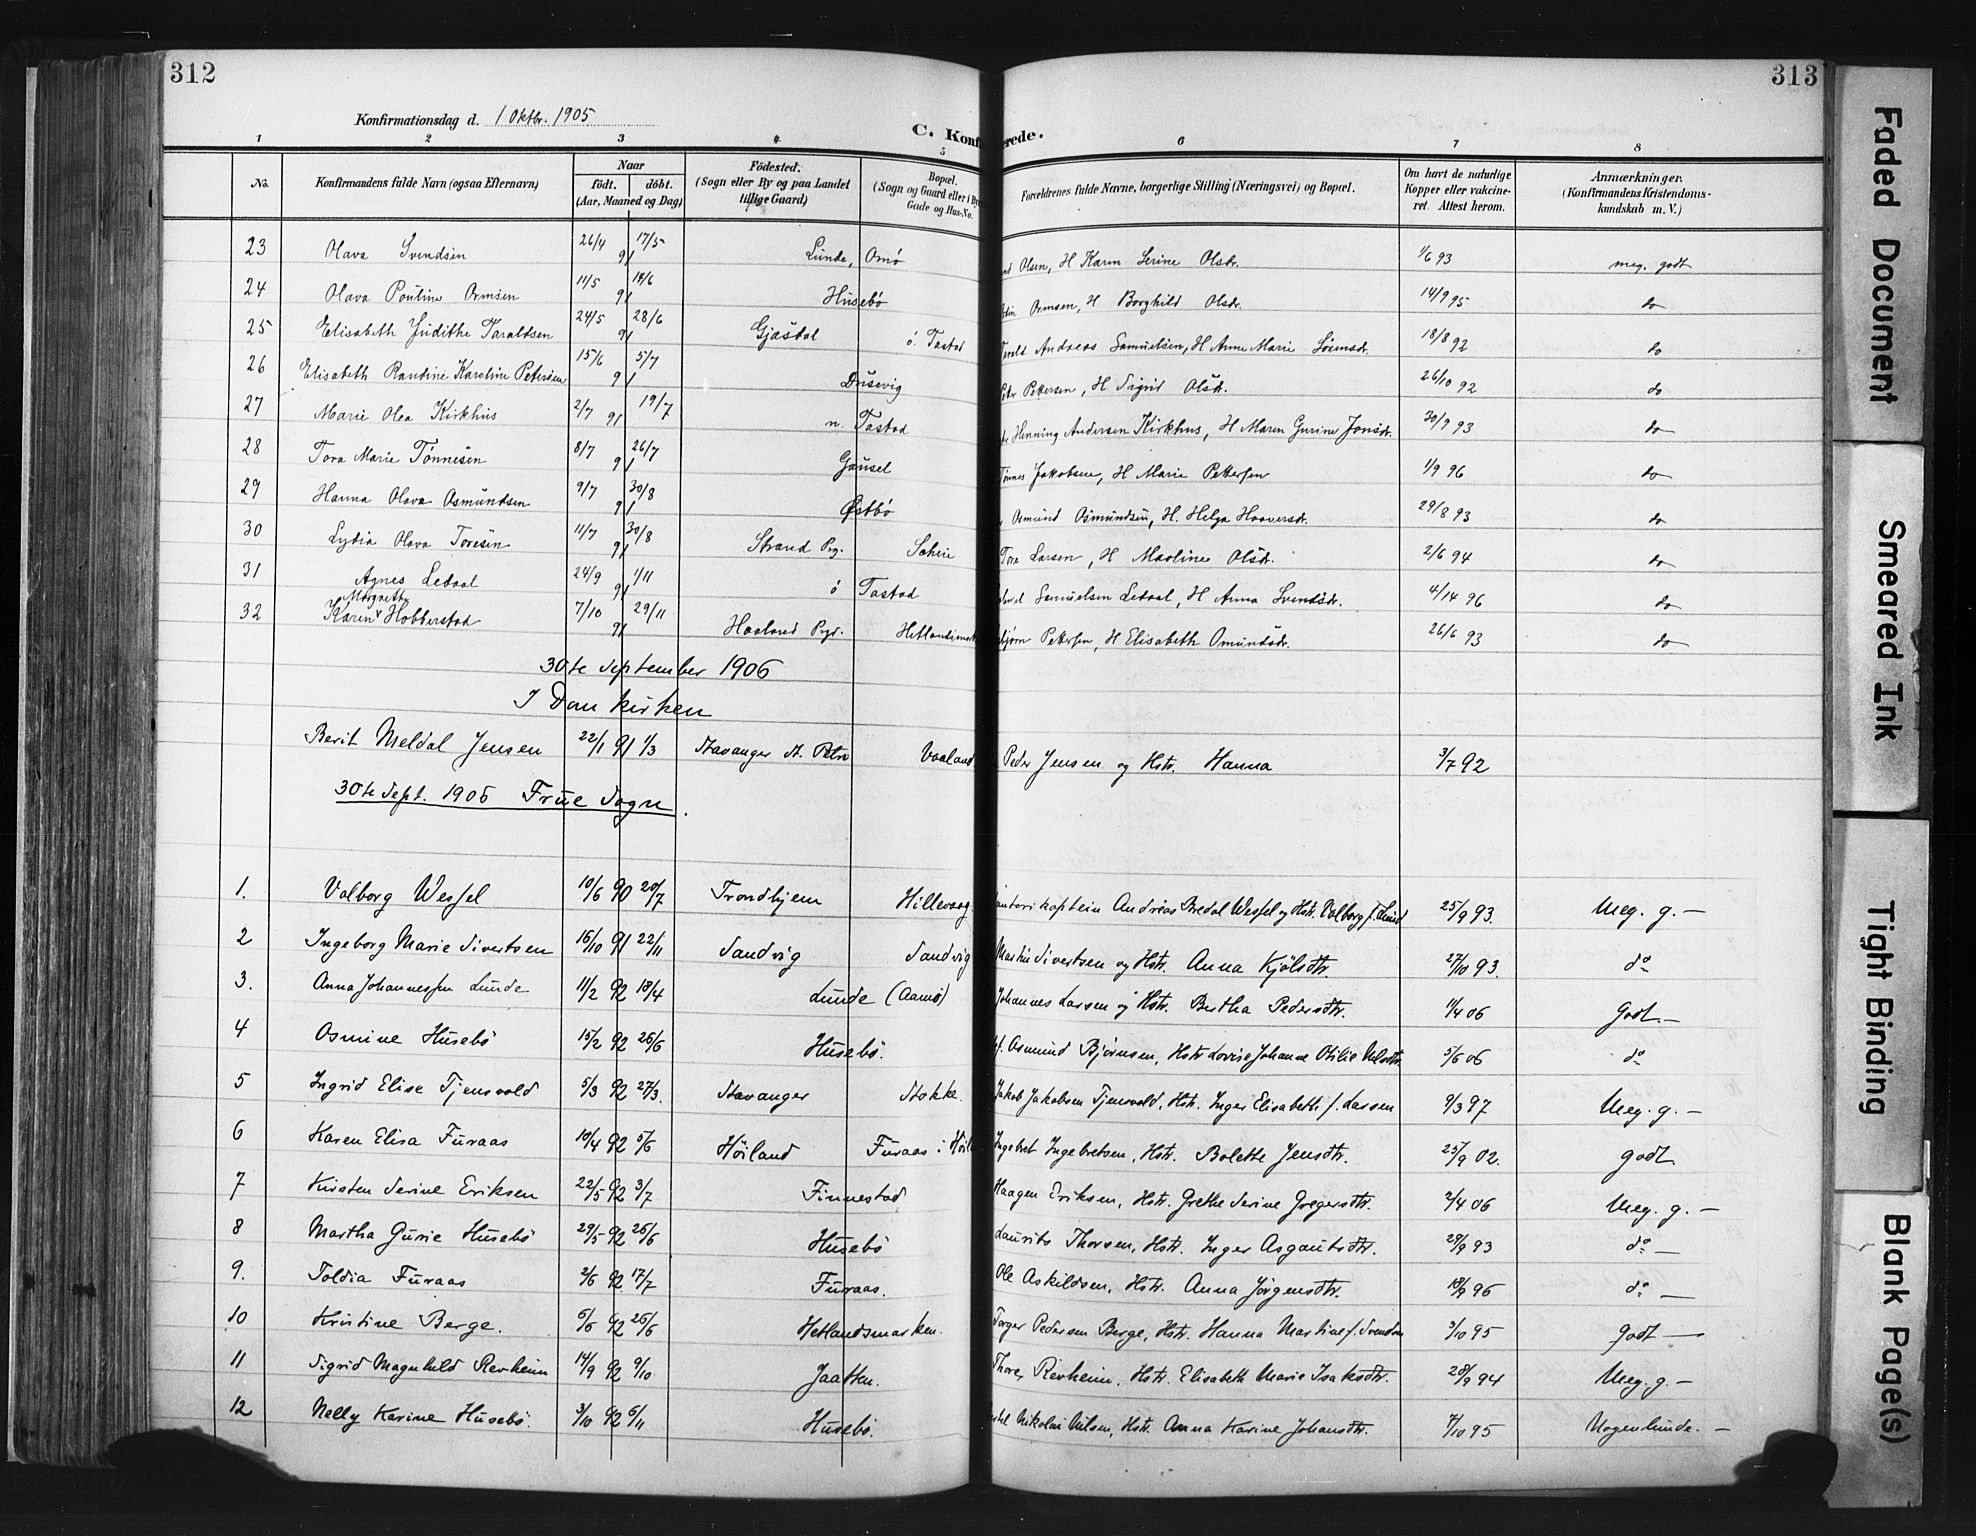 312
313
Konfirmationsdag d. 1 Oktbr. 1905
C. Konf erede.
1 2 3 4 5 6 7 8
No. Konfirmandens fulde Navn (ogsaa Efternavn) Naar født. døbt. (Aar, Maaned og Dag) Födested. (Sogn eller By og paa Landet tillige Gaard) Bopæl. (Sogn og Gaard eller i By Gade og Hus-No. Forældrenes fulde Navne, borgerlige Stilling (Næringsvei) og Bopæl. Om havt de naturlige Kopper eller vakcineret. Attest herom. Anmærkninger. (Konfirmandens Kristendomskundskab m. V.)
23 Olava Svendsen 26/4 17/5 91 Lunde, Omø Olsen, H Karen Serine Olsdr. 1/6 93 meg. godt
24 Olava Pouline Ormsen 11/5 14/6 91 Husebö Ormsen, H Borghild Olsdr. 14/9 95 do
25 Elisabeth Judithe Taraldsen 24/5 28/6 91 Gjæsdal ö. Tastad Tarald Andreas Samuelsen, H Anne Marie 18/8 92 do
26 Elisabeth Randine Karoline Petersen 15/6 5/7 91 Dusevig Petter Pettersen, H Sigrid Olsdr. 26/10 92 do
27 Marie Olea Kirkhus 2/7 19/7 91 n. Tastad Henning Andersen Kirkhus, H Maren Gurine Jonsdr. 30/9 93 do
28 Tora Marie Tönnesen 8/7 26/7 91 Gausel Tönnes Jakobsen, H Marie Pettersen 1/9 96 do
29 Hanna Olava Osmundsen 9/7 30/8 91 Østbö Osmund Osmundsen, H. Helga Haaversdr. 29/8 93 do
30 Lydia Olava Toresen 11/7 30/8 91 Strand Pg. Tore Larsen, H Maoline Olsdr. 2/6 94 do
31 Agnes Ledaal 24/9 1/11 91 ö Tastad Samuelsen Ledaal, H Anna Svendsdr. 4/14 96 do
32 Karen Margrethe Hobberstad 7/10 29/11 91 Haaland Prgd. Hetlandsmark Pettersen, H Elisabeth Omundsdr. 26/6 93 do
30te September 1906
I Domkirken
Berit Meldal Jensen 22/1 91 1/3 Stavanger St. Petri Vaaland Peder Jensen og Hstr. Hanna 3/7 92
30te Sept. 1906 Frue Sogn.
1. Valborg Wessel 10/6 90 20/7 Trondhjem Hillevaag Andreas Bredal Wessel og Hstr. Valborg f. Lund 25/9 93. Meg. g. —
2 Ingeborg Marie Sivertsen 16/10 91 22/11 Sandvig Sandvig Martin Sivertsen og Hstr. Anna Kjölsdtr. 27/10 93. do
3. Anna Johannessen Lunde 11/2 92 18/4 Lunde (Aamø) Johannes Larsen og Hstr. Bertha Pedersdtr. 11/4 06 Godt. —
4 Osmine Husebö 15/2 92 26/6 Husebö. Osmund Bjørnsen, Hstr Lovise Johanne Otilie Nilsdtr. 5/6 06 do
5 Ingrid Elise Tjensvold 5/3 92 27/3. Stavanger Stokke. Jakob Jakobsen Tjensvold, Hstr. Inger Elisabeth f. Larsen 9/3 97 Meg. g. —
6 Karen Elisa Furaas 10/4 92 5/6 Höiland Furaas i Ingebret Ingebretsen, Hstr. Bolette Jensdtr. 25/9 02. godt.
7 Kirsten Serine Eriksen 22/5 92 3/7 Finnestad Haagen Eriksen, Hstr. Grethe Serine Gregersdtr. 2/4 06 Meg. g. —
8 Martha Gurie Husebö 29/5 92 26/6 Husebö Laurits Thorsen, Hstr. Inger Asgautsdtr. 29/9 93 do —
9. Toldia Furaas 2/6 92 17/7 Furaas. Ole Askildsen, Hstr. Anna Jörgensdtr. 96 do —
10 Kristine Berge. 5/6 92 26/6 Hetlandsmarken. Torger Pedersen Berge, Hstr. Hanna Martine f. Svendsen 3/10 95 Godt —
11 Sigrid Magnhild Revheim 14/9 92 9/10 Jaatten. Thore Revheim, Hstr. Elisabeth Marie Isaksdtr. 28/9 94 Meg. g. —
12 Nelly Karine Husebö. 3/10 92 6/11 Husebö. Nikolai Nilsen, Hstr. Anna Karine Johansdtr. 7/10 95 Nogenlunde. —
Faded Document
Smeared Ink
Tight Binding
Blank Page(s)